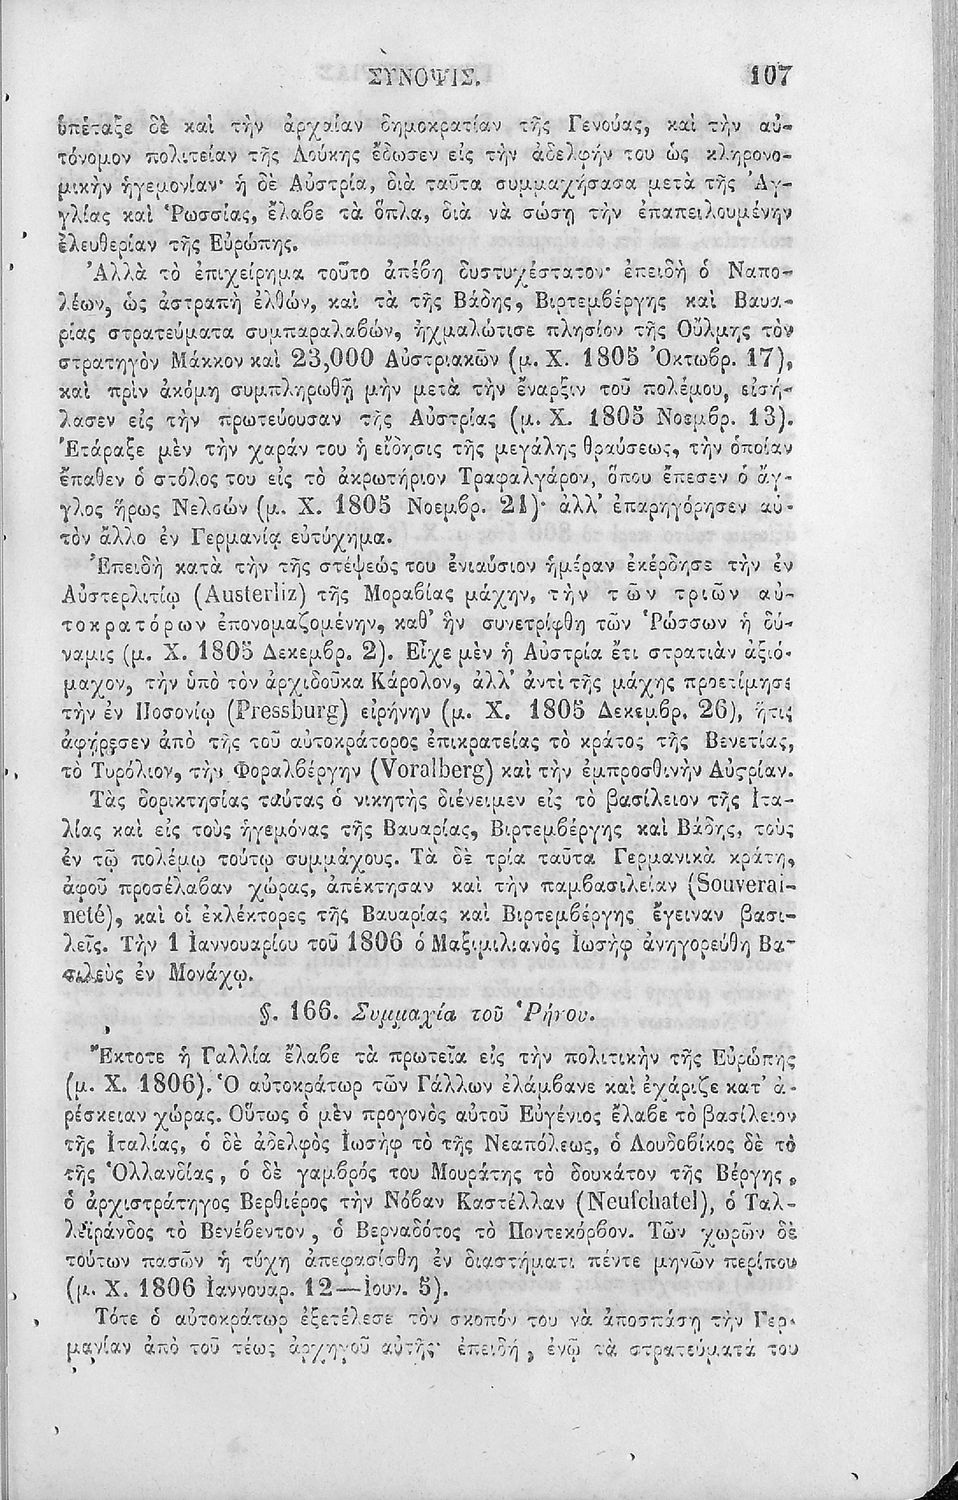 ΣΥΝΟΨΙΣ. 107
ὑπέταξε δὲ καὶ τὴν ἀρχαίαν δημοκρατίαν τῆς Γενούας, καὶ τὴν αὐ-
τόνομον πολιτείαν τῆς Λούκης ἔδωσεν εἰς τὴν ἀδελφήν του ὡς κληρονο-
μικὴν ἡγεμονίαν· ἡ δὲ Αὐστρία, διὰ ταῦτα συμμαχήσασα μετὰ τῆς Ἀγ-
γλίας καὶ Ῥωσσίας, ἔλαβε τὰ ὅπλα, διὰ νὰ σώσῃ τὴν ἐπαπειλουμένην
ἐλευθερίαν τῆς Εὐρώπης.
Ἀλλὰ τὸ ἐπιχείρημα τοῦτο ἀπέβη δυστυχέστατον· ἐπειδὴ ὁ Ναπο-
λέων, ὡς ἀστραπὴ ἐλθών, καὶ τὰ τῆς Βάδης, Βιρτεμβέργης καὶ Βαυα-
ρίας στρατεύματα συμπαραλαβών, ᾐχμαλώτισε πλησίον τῆς Οὔλμης τὸν
στρατηγὸν Μάκκον καὶ 23,000 Αὐστριακῶν (μ. Χ. 1805 Ὀκτωβρ. 17),
καὶ πρὶν ἀκόμη συμπληρωθῇ μὴν μετὰ τὴν ἔναρξιν τοῦ πολέμου, εἰσή-
λασεν εἰς τὴν πρωτεύουσαν τῆς Αὐστρίας (μ. Χ. 1805 Νοεμβρ. 13).
Ἐτάραξε μὲν τὴν χαράν του ἡ εἴδησις τῆς μεγάλης θραύσεως, τὴν ὁποίαν
ἔπαθεν ὁ στόλος του εἰς τὸ ἀκρωτήριον Τραφαλγάρον, ὅπου ἔπεσεν ὁ ἄγ-
γλος ἥρως Νελσών (μ. Χ. 1805 Νοεμβρ. 21)· ἀλλ' ἐπαρηγόρησεν αὐ-
τὸν ἄλλο ἐν Γερμανίᾳ εὐτύχημα.
Ἐπειδὴ κατὰ τὴν τῆς στέψεώς του ἐνιαύσιον ἡμέραν ἐκέρδησε τὴν ἐν
Αὐστερλιτίῳ (Austerliz) τῆς Μοραβίας μάχην, τὴν τῶν τριῶν αὐ-
τοκρατόρων ἐπονομαζομένην, καθ' ἣν συνετρίφθη τῶν Ῥώσσων ἡ δύ-
ναμις (μ. Χ. 1805 Δεκεμβρ. 2). Εἶχε μὲν ἡ Αὐστρία ἔτι στρατιὰν ἀξιό-
μαχον, τὴν ὑπὸ τὸν ἀρχιδοῦκα Κάρολον, ἀλλ' ἀντὶ τῆς μάχης προετίμησε
τὴν ἐν Ποσονίῳ (Pressburg) εἰρήνην (μ. Χ. 1805 Δεκεμβρ. 26), ἥτις
ἀφῄρεσεν ἀπὸ τῆς τοῦ αὐτοκράτορος ἐπικρατείας τὸ κράτος τῆς Βενετίας,
τὸ Τυρόλιον, τὴν Φοραλβέργην (Voralberg) καὶ τὴν ἐμπροσθινὴν Αὐστρίαν.
Τὰς δορικτησίας ταύτας ὁ νικητὴς διένειμεν εἰς τὸ βασίλειον τῆς Ἰτα-
λίας καὶ εἰς τοὺς ἡγεμόνας τῆς Βαυαρίας, Βιρτεμβέργης καὶ Βάδης, τοὺς
ἐν τῷ πολέμῳ τούτῳ συμμάχους. Τὰ δὲ τρία ταῦτα Γερμανικὰ κράτη,
ἀφοῦ προσέλαβαν χώρας, ἀπέκτησαν καὶ τὴν παμβασιλείαν (Souverai-
neté), καὶ οἱ ἐκλέκτορες τῆς Βαυαρίας καὶ Βιρτεμβέργης ἔγειναν βασι-
λεῖς. Τὴν 1 Ἰαννουαρίου τοῦ 1806 ὁ Μαξιμιλιανὸς Ἰωσὴφ ἀνηγορεύθη Βα-
σιλεὺς ἐν Μονάχῳ.
§. 166. Συμμαχία τοῦ Ῥήνου.
Ἔκτοτε ἡ Γαλλία ἔλαβε τὰ πρωτεῖα εἰς τὴν πολιτικὴν τῆς Εὐρώπης
(μ. Χ. 1806). Ὁ αὐτοκράτωρ τῶν Γάλλων ἐλάμβανε καὶ ἐχάριζε κατ' ἀ-
ρέσκειαν χώρας. Οὕτως ὁ μὲν προγονὸς αὐτοῦ Εὐγένιος ἔλαβε τὸ βασίλειον
τῆς Ἰταλίας, ὁ δὲ ἀδελφὸς Ἰωσὴφ τὸ τῆς Νεαπόλεως, ὁ Λουδοβίκος δὲ τὸ
τῆς Ὁλλανδίας, ὁ δὲ γαμβρός του Μουράτης τὸ δουκάτον τῆς Βέργης,
ὁ ἀρχιστράτηγος Βερθιέρος τὴν Νόβαν Καστέλλαν (Neufchatel), ὁ Ταλ-
λεϊράνδος τὸ Βενέβεντον, ὁ Βερναδότος τὸ Ποντεκόρβον. Τῶν χωρῶν δὲ
τούτων πασῶν ἡ τύχη ἀπεφασίσθη ἐν διαστήματι πέντε μηνῶν περίπου
(μ. Χ. 1806 Ἰαννουαρ. 12—Ἰουν. 5).
Τότε ὁ αὐτοκράτωρ ἐξετέλεσε τὸν σκοπόν του νὰ ἀποσπάσῃ τὴν Γερ-
μανίαν ἀπὸ τοῦ τέως ἀρχηγοῦ αὐτῆς· ἐπειδή, ἐνῷ τὰ στρατεύματά του